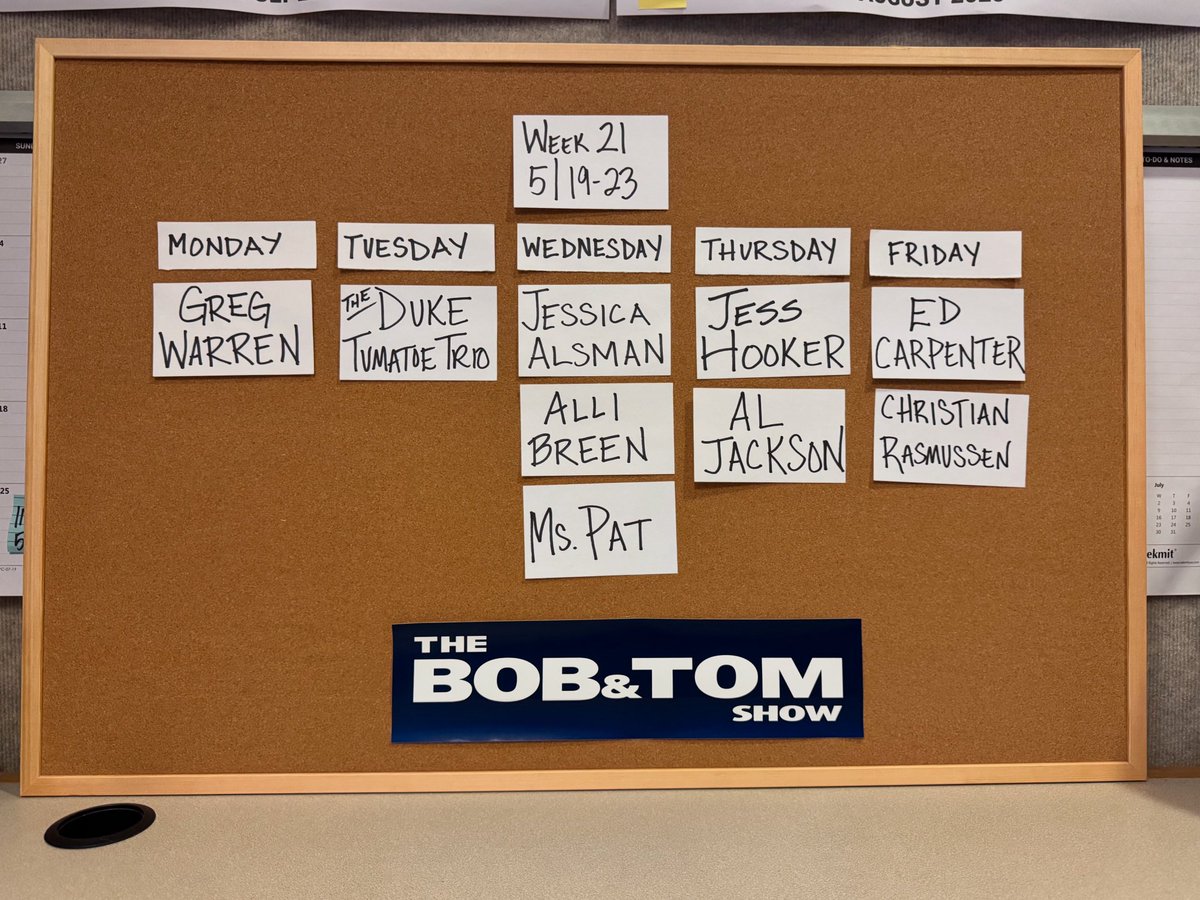 WEEK 21
5/19-23
MONDAY
TUESDAY
WEDNESDAY
THURSDAY
FRIDAY
GREG
WARREN
THE DUKE
TUMATOE TRIO
JESSICA
ALSMAN
JESS
HOOKER
ED
CARPENTER
ALLI
BREEN
AL
JACKSON
CHRISTIAN
RASMUSSEN
MS. PAT
THE
BOB&TOM
SHOW
TO-DO & NOTES
July